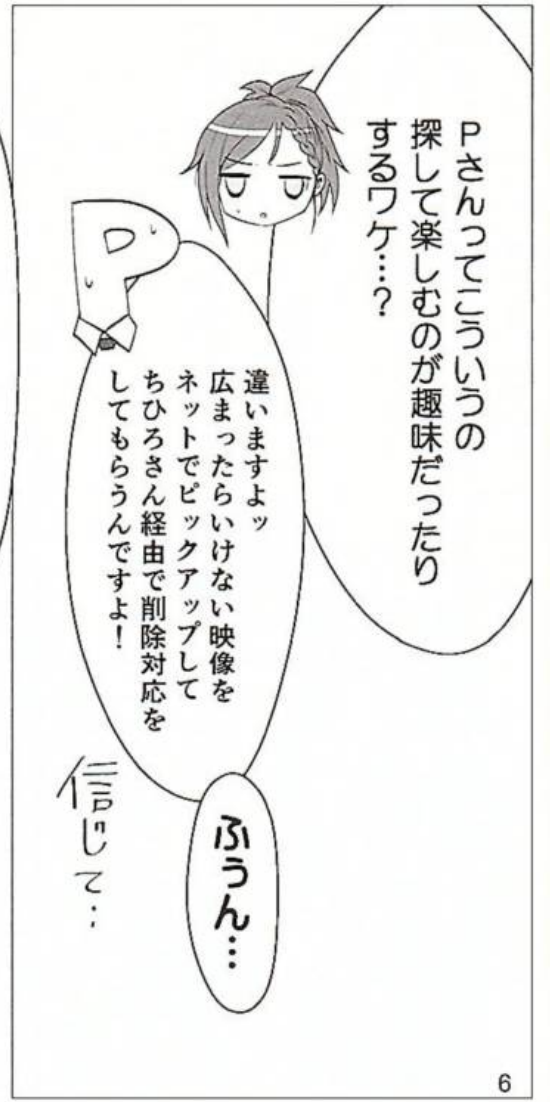 Pさんってこういうの
探して楽しむのが趣味だったり
するワケ…?
P
違いますよッ
広まったらいけない映像を
ネットでピックアップして
ちひろさん経由で削除対応を
してもらうんですよ!
ふぅん…
信じて‥
6